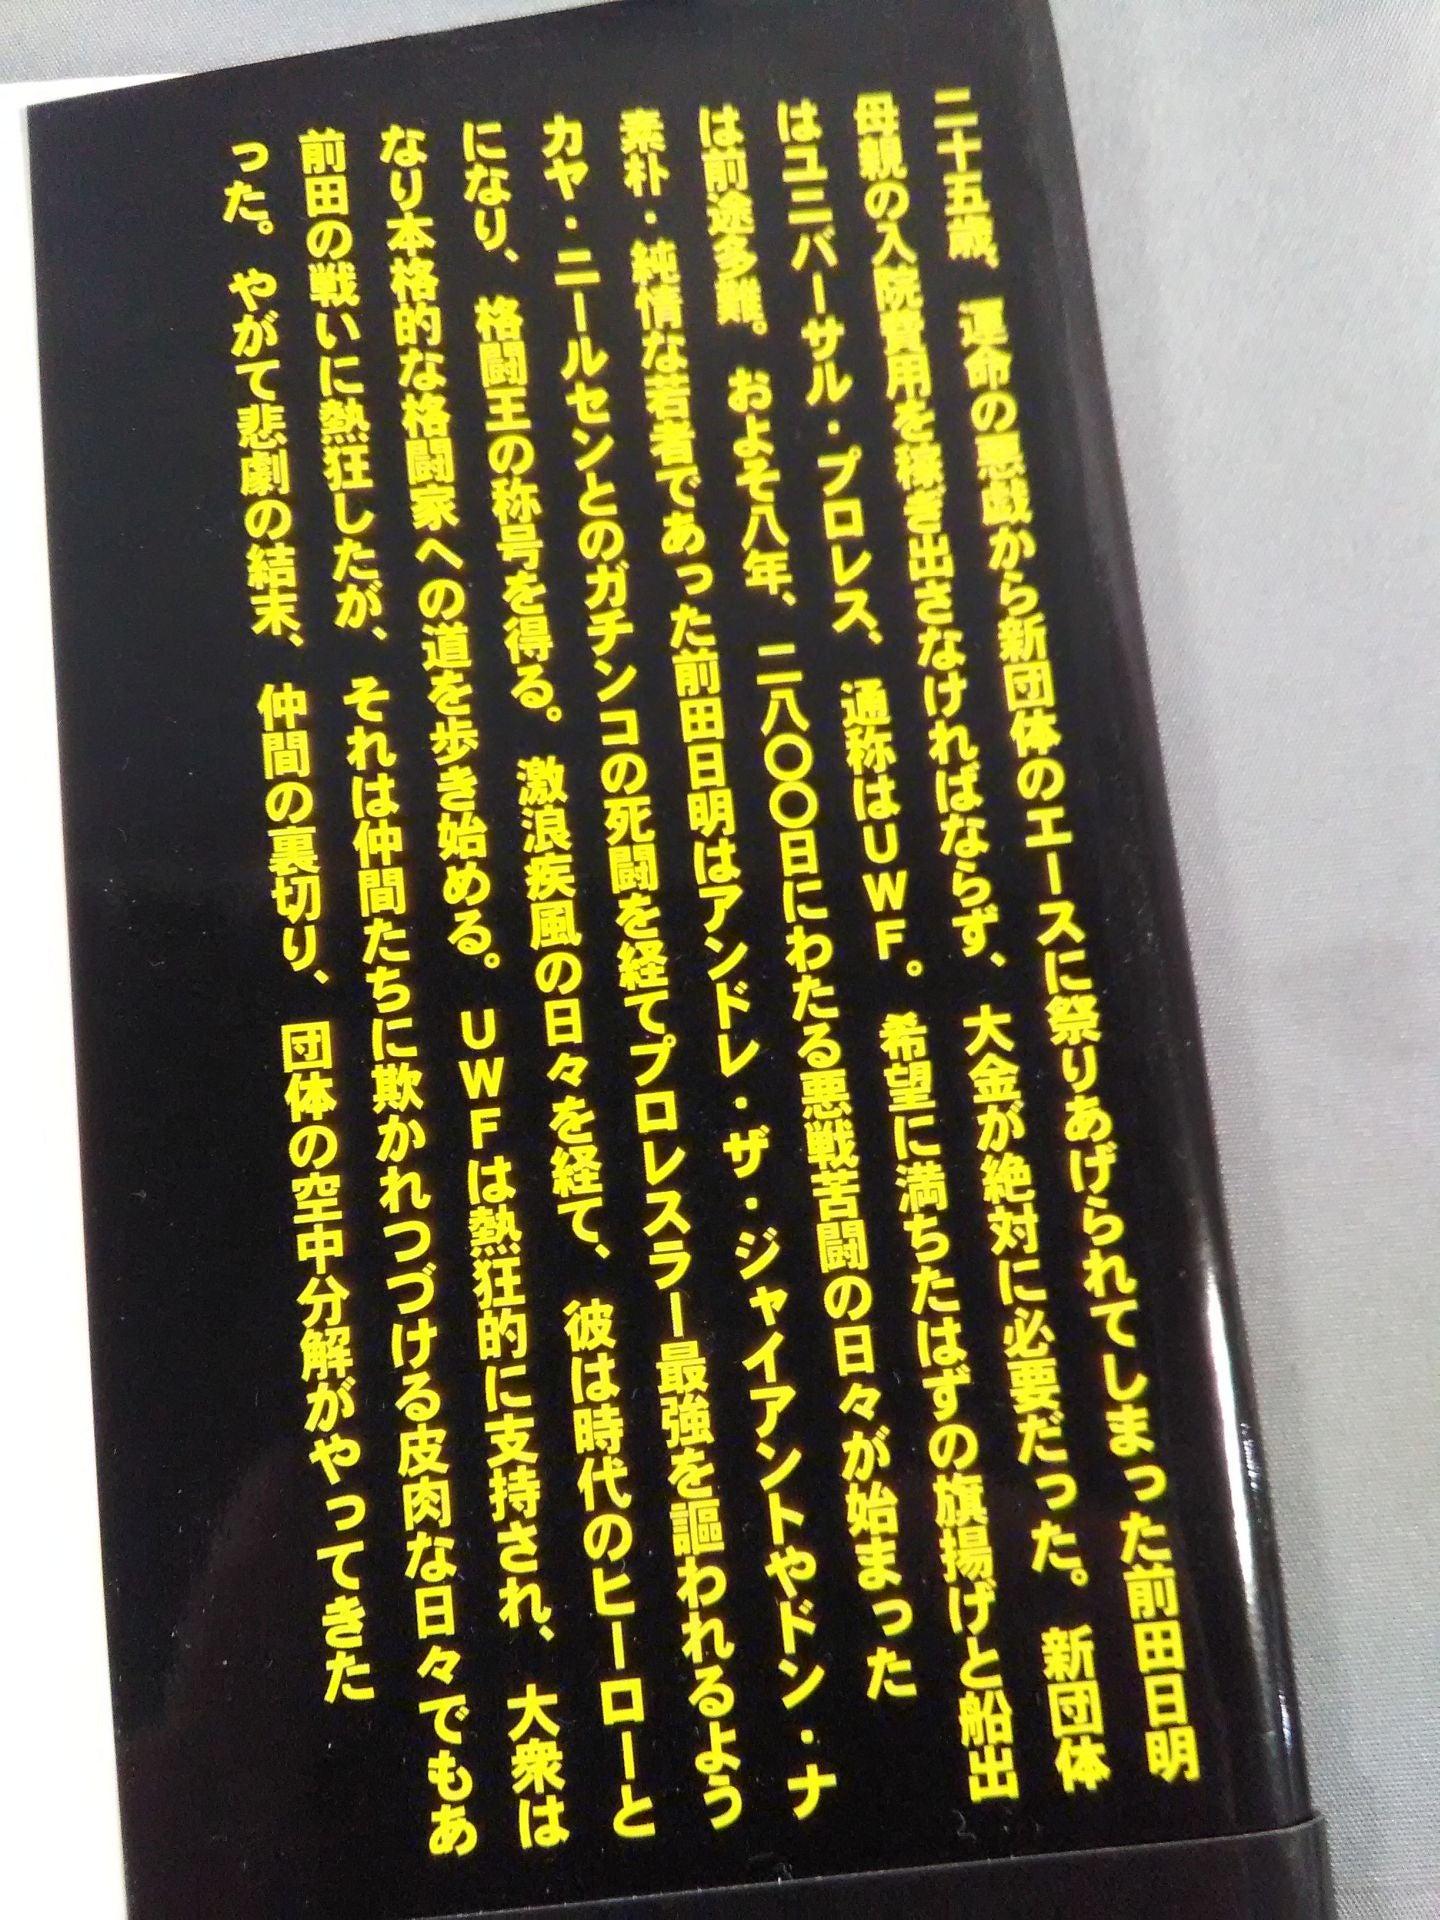 二十五歳、運命の悪戯から新団体のエースに祭りあげられてしまった前田日明
母親の入院費用を稼ぎ出さなければならず、大金が絶対に必要だった。新団体
はユニバーサル・プロレス、通称はUWF。希望に満ちたはずの旗揚げと船出
は前途多難。およそ八年、二八〇〇日にわたる悪戦苦闘の日々が始まった
素朴・純情な若者であった前田日明はアンドレ・ザ・ジャイアントやドン・ナ
カヤ・ニールセンとのガチンコの死闘を経てプロレスラー最強を謳われるよう
になり、格闘王の称号を得る。激浪疾風の日々を経て、彼は時代のヒーローと
なり本格的な格闘家への道を歩き始める。UWFは熱狂的に支持され、大衆は
前田の戦いに熱狂したが、それは仲間たちに欺かれつづける皮肉な日々でもあ
った。やがて悲劇の結末、仲間の裏切り、団体の空中分解がやってきた